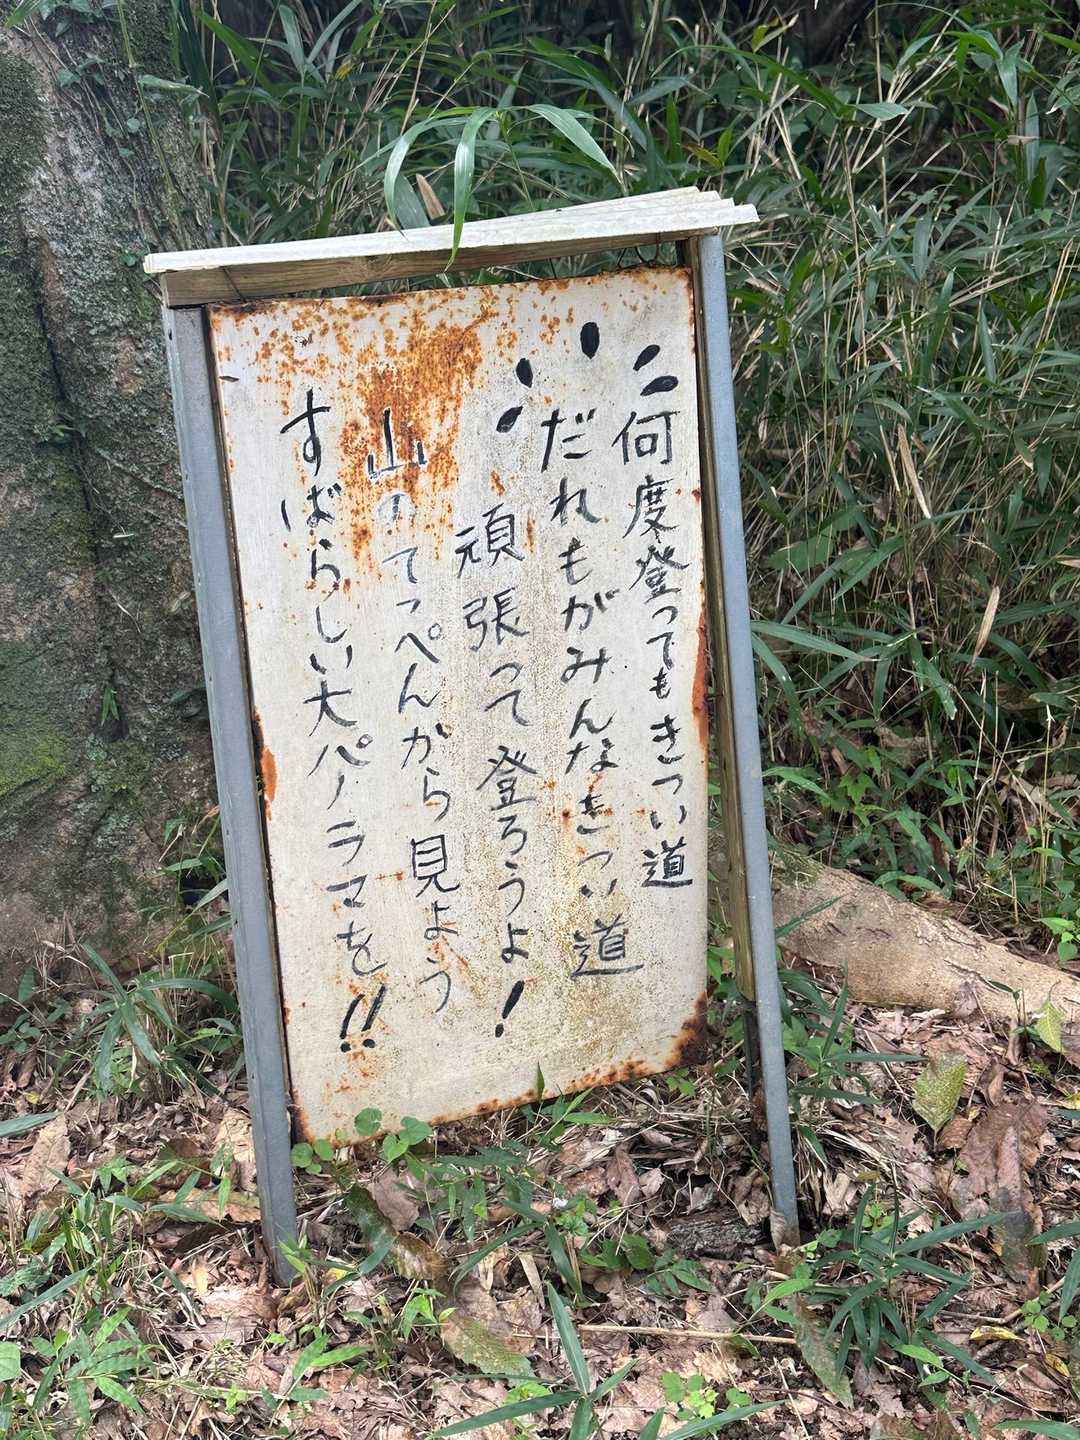 何度登ってもきつい道
だれもがみんなきつい道
頑張って登ろうよ!
山のてっぺんから見よう
すばらしい大パノラマを!!